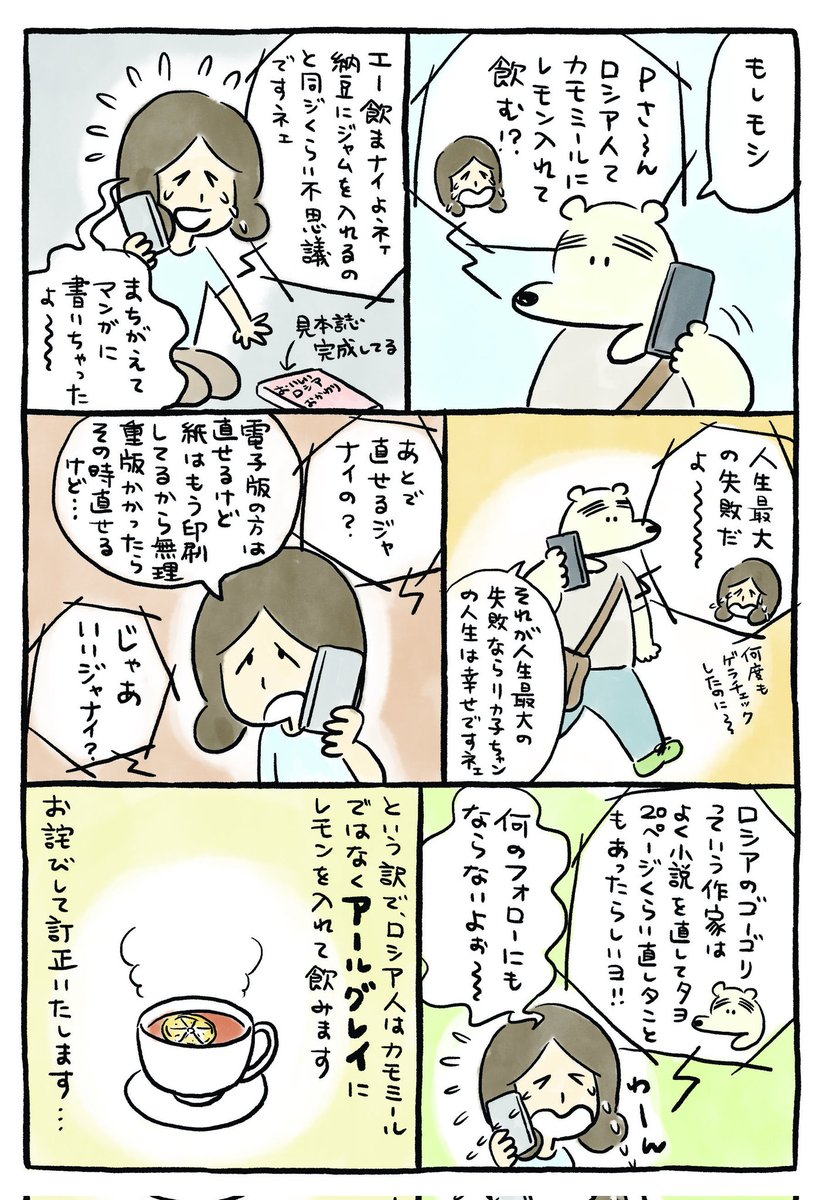 もしモシ
Pさ〜ん
ロシア人て
カモミールに
レモン入れて
飲む!?
エー飲まナイよネェ
納豆にジャムを入れるの
と同ジくらい不思議
ですネェ
まちがえて
マンガに
書いちゃった
よ〜〜〜
見本誌
完成してる
おいしい
ロシア
おかわり
人生最大
の失敗だ
よ〜〜〜
何度も
ゲラチェック
したのに〜
それが人生最大の
失敗ならリカ子ちゃン
の人生は幸せですネェ
あとで
直せるジャ
ナイの?
電子版の方は
直せるけど
紙はもう印刷
してるから無理
重版かかったら
その時直せる
けど…
じゃあ
いいジャナイ?
ロシアのゴーゴリ
っていう作家は
よく小説を直してタヨ
20ページくらい直しタこと
もあったらしいヨ!!
何のフォローにも
ならないよぉ〜〜
わーん
という訳で、ロシア人はカモミール
ではなくアールグレイに
レモンを入れて飲みます
お詫びして訂正いたします…